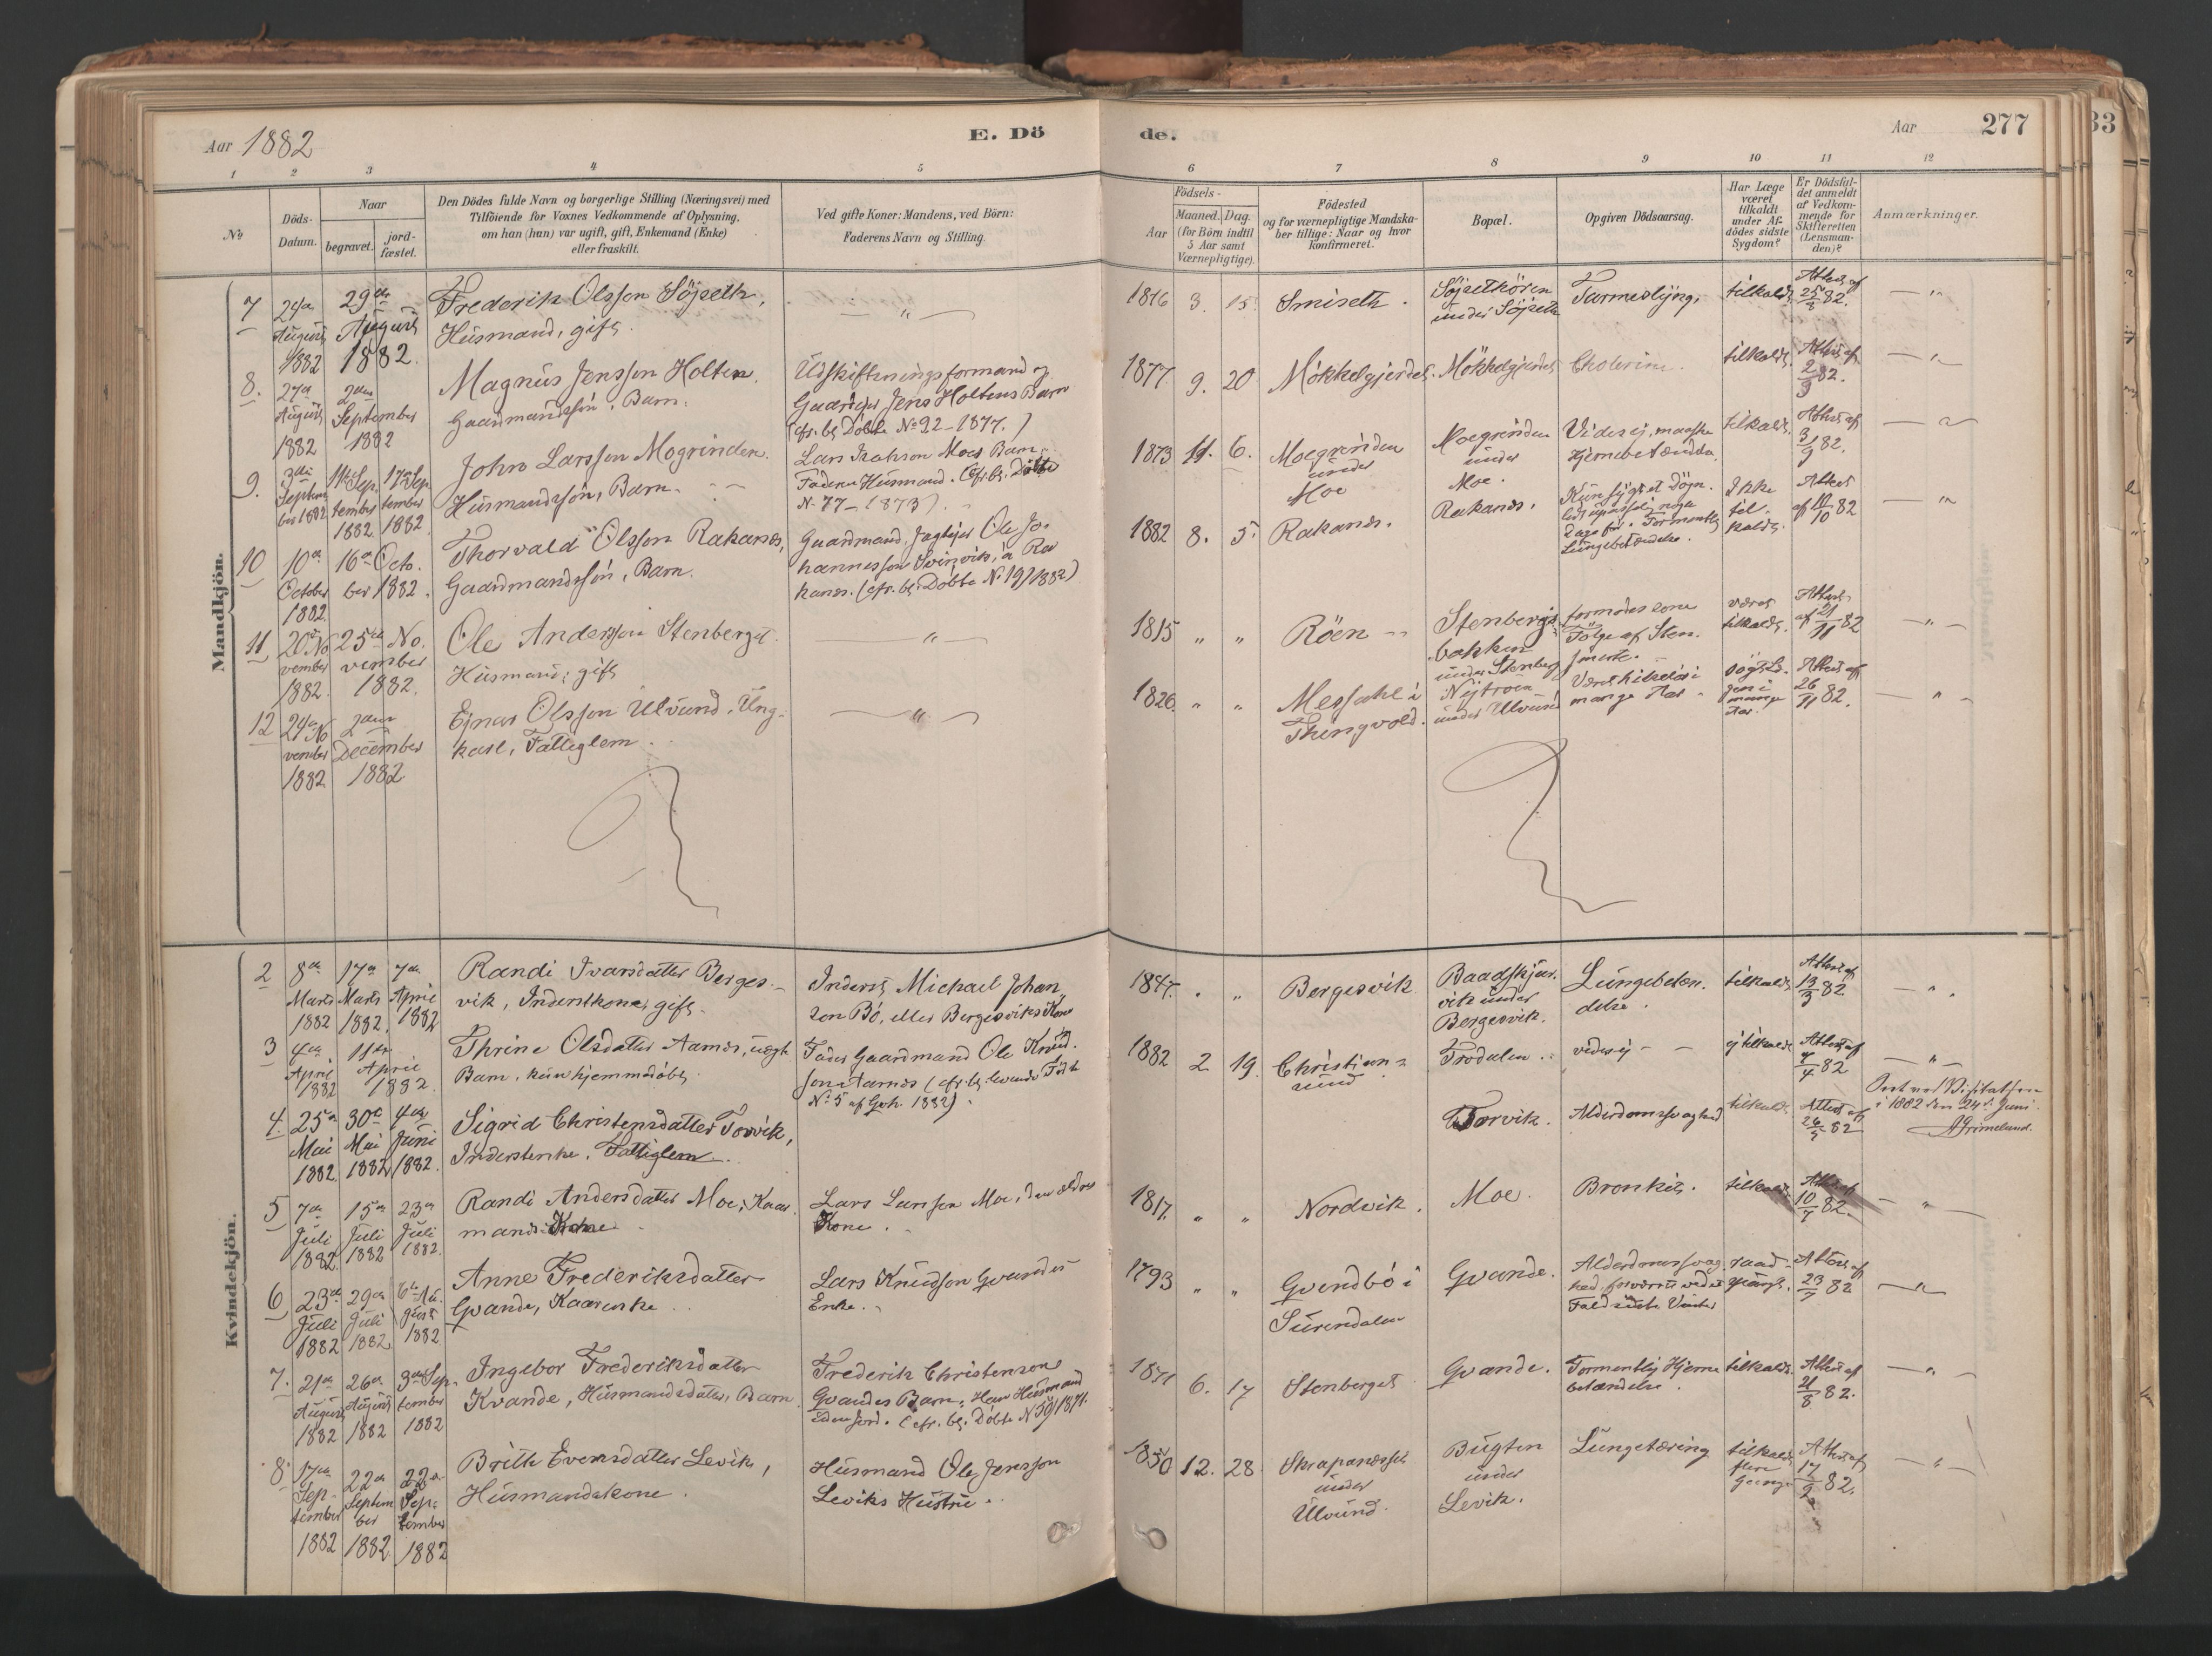 Aar 1882
E. Dö
de.
Aar 277
33
1 2 3 4 5 6 7 8 9 10 11 12
No
Döds-
Datum.
Naar
begravet.
jord-
fæstet.
Den Dödes fulde Navn og borgerlige Stilling (Næringsvei) med
Tilföiende for Voxnes Vedkommende af Oplysning.
om han (hun) var ugift, gift, Enkemand (Enke)
eller fraskilt.
Ved gifte Koner: Mandens, ved Börn:
Faderens Navn og Stilling.
Födsels-
Aar
Maaned. Dag.
(for Börn indtil
5 Aar samt
Værnepligtige).
Födested
og for værnepligtige Mandska-
ber tillige: Naar og hvor
konfirmeret.
Bopæl.
Opgiven Dödsaarsag.
Har Læge
været
tilkaldt
under Af-
dödes sidste
Sygdom?
Er Dödsfal-
det anmeldt
af Vedkom-
mende for
Skifteretten
(Lensman-
den)?
Anmærkninger.
Mandkjön.
7
August
1882
29de
August
1882.
Frederik Olsson Söjseth,
Husmand, gift.
"
1816 3. 15.
Smiseth.
under Söjseth
Tarmeslyng.
tilkaldt
Attest af
25/8 82.
"
8.
27de
August
1882
2den
September
1882
Magnus Jensson Holten.
Gaardmandssön, Barn.
Udskiftningsformand og
Gaardejer Jens Holtens Barn
(cfr. bg. Döbte No 22-1877.)
1877 9. 20
Mökkelgjerdet.
Mökkelgjerdet
Cholerine.
tilkaldt.
Attest af
2/9 82.
"
9.
3die
Septem
ber 1882
11te Sep.
tember
1882.
17de Sep
tember
1882.
John Larsson Mogrinden.
Husmandssön, Barn.
Lars Moes Barn.
Faderen Husmand. (cfr. bg. Döbte
No 77-1873).
1873 11. 6.
Moegrinden
under
Moe
Moegrinden
under
Moe.
Vides ej, maaske
Hjernebetændelse.
tilkaldt.
Attest af
3/9 82.
10
10de
October
1882.
16de Octo.
ber 1882.
Thorvald Olsson Rakanes,
Gaardmandssön, Barn.
Gaardmand, Ole Jo.
hannesson Svinvik, à Ra
kanes. (cfr. bg. Döbte No 19/1882)
1882 8. 5.
Rakanes.
Rakanes.
Kun sygt et Dögn.
Lungebetændelse.
Ikke
til.
kaldt.
Attest
"
11
20de No
vember
1882.
25de No.
vember
1882.
Ole Andersson Stenberget.
Husmand, gift
"
1815 " "
Röen
Stenbergs
bakken
under Stenberg
formodes som
Fölge af Sten.
smerte.
været
tilkaldt.
Attest
af 21/11 82
"
12
24de No
vember
1882
2den
December
1882
Ejnar Olsson Ulvund. Ung-
karl, Fattiglem.
"
1826. " "
Messahl i
Thingvold.
Nytroen
under Ulvund
Været hilselös i
mange Aar.
sögt Læ-
gen i
mange
Aar.
Attest af
26/11 82.
"
Kvindekjön.
2
8de
Marts
1882
17de
Marts
1882.
7de
April
1882
Randi Ivarsdatter Berges-
vik, Inderstkone, gift.
Inderst Michael Johan
sen Bö, eller Bergesviks Kone
1847. " "
Bergesvik
Baadskjær-
vik under
Bergesvik.
Lungebetæn.
delse.
tilkaldt
Attest af
13/3 82.
"
3
4de
April
1882
11te
April
1882.
Thrine Olsdatter Aarnes, uægte
Barn, kun hjemmedöbt.
Fader Gaardmand Ole Knud.
son Aarnes (cfr. bg. levende Födt
No 5 af Qvk. 1882).
1882 2. 19.
Christian-
sund
Trodalen.
vides ej
ej tilkaldt
Attest af
"
4.
25de
Mai
1882
30te
Mai
1882
4de
Juni
1882.
Sigrid Christensdatter Torvik,
Inderstenke. Fattiglem.
Torvik.
Alderdomssvaghed
tilkaldt.
Attest af
26/5 82
Seet ved Visitatsen
i 1882 den 24de Juni
AGrimelund.
5
7de
Juli
1882
15de
Juli
1882
23de
Juli
1882.
Randi Andersdatter Moe, Kaar-
mands Kone
Lars Larsson Moe, den ældres
Kone.
1817. " "
Nordvik.
Moe.
Bronkit.
tilkaldt
Attest af
10/7 82.
"
6
23de
Juli
1882
29de
Juli
1882.
6te Au.
gust
1882
Anne Frederiksdatter
Qvande, Kaarenke
Lars Knudson Qvandes
Enke.
1793 " "
Qvendbö i
Surendalen
Qvande.
Alderdomssvag-
hed, forværret ved et
Fald sidste Vinter
raad-
spurgt.
Attest af
23/7 82
"
7.
21de
August
1882
26de
August
1882
3die Sep.
tember
1882
Ingebor Frederiksdatter
Kvande, Husmandsdatter, Barn.
Frederik Christensens
Qvandes Barn, Han Husmand
uden Jord. (cfr. bg. Döbte No 50/1871.
1871 6. 17
Stenberget
Qvande.
Formentlig Hjerne
betændelse.
tilkaldt.
Attest af
21/8 82.
"
8
17de
Sep-
tember
1882
22de
Septem
ber
1882.
22de
Sep-
tember
1882
Brith Evensdatter Levik,
Husmandskone.
Husmand Ole Jensson
Leviks Hustru.
1850 12. 28
Skrapanesset
under
Ulvund.
Bugten
under
Levik.
Lungetæring
tilkaldt
flere
Gange
Attest af
17/9 82.
"